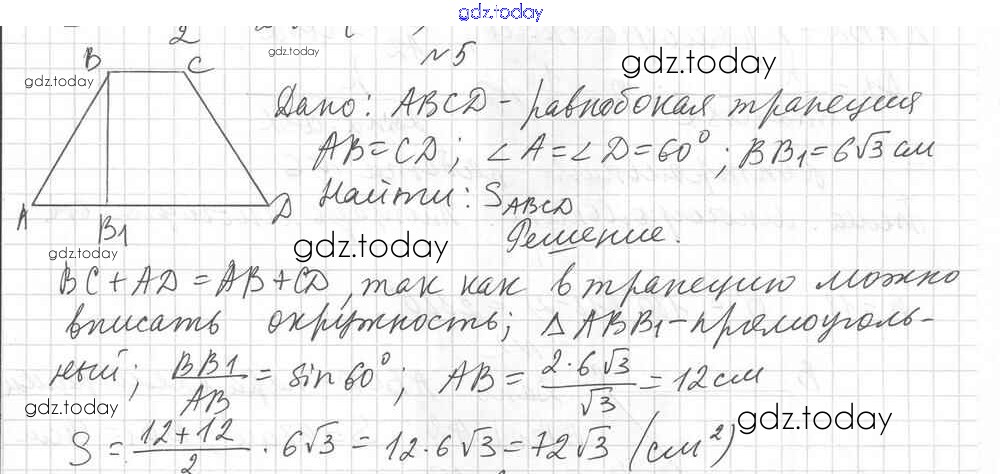 gdz.today
2
gdz.today
№5
gdz.today
B C
gdz.today
Дано: ABCD - равнобокая трапеция
AB = CD; ∠A = ∠D = 60°; BB₁ = 6√3 см
Найти: S_ABCD
A B1 D
gdz.today
gdz.today
Решение.
BC + AD = AB + CD, так как в трапецию можно
вписать окружность; △ABB₁ - прямоуголь-
ный; BB1/AB = sin 60°; AB = 2·6√3/√3 = 12 см
gdz.today
gdz.today
S = 12+12/2 · 6√3 = 12·6√3 = 72√3 (см²)